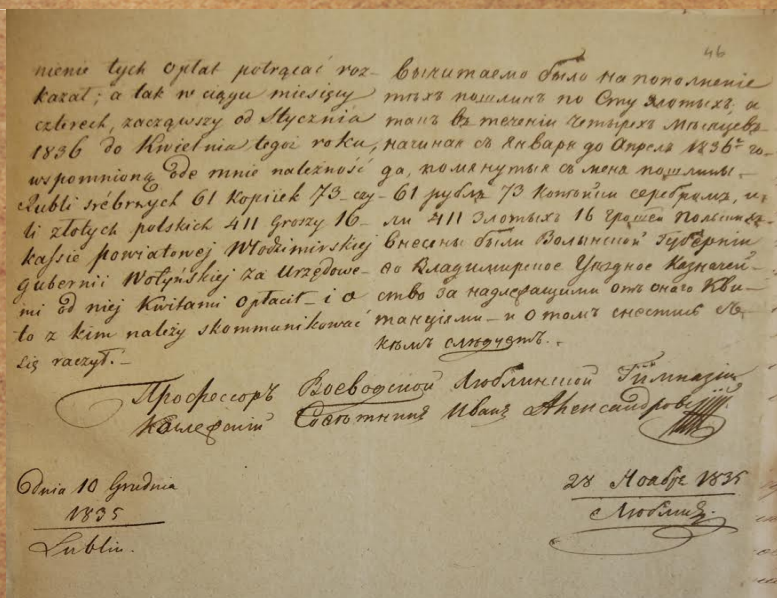 46
nienie tych opłat potrącać roz-
kazał; a tak w ciągu miesięcy
czterech, zacząwszy od Stycznia
1836 do Kwietnia tegoż roku,
wspomnioną ode mnie należność
Rubli srebrnych 61 kopiiek 73 - czy-
li złotych polskich 411 groszy 16 -
kassie powiatowej Włodzimirskiej
gubernii Wołyńskiej za Urzędowe-
mi od niej Kwitami opłacił - i o
to z kim należy skommunikować
się raczył. -
вычитаемо было на пополнение
тѣхъ пошлинъ по Сту злотыхъ, а
такъ въ теченіи Четырехъ Мѣсяцевъ
начиная съ Января до Апреля 1836го го-
да, помянутыя съ меня пошлины -
61 рубль 73 копѣйки серебромъ, и-
ли 411 Злотыхъ 16 грошей Польскихъ
внесены были Волынской Губерніи
во Владимирское Уѣздное Казначей-
ство за надлежащими отъ онаго Кви-
танціями - и о томъ снестись съ
кѣмъ слѣдуетъ. -
Профессоръ Воеводской Люблинской Гимназіи
Коллежскій Совѣтникъ Иванъ
Dnia 10 Grudnia
1835
Lublin.
28 Ноября 1835
Люблинъ.